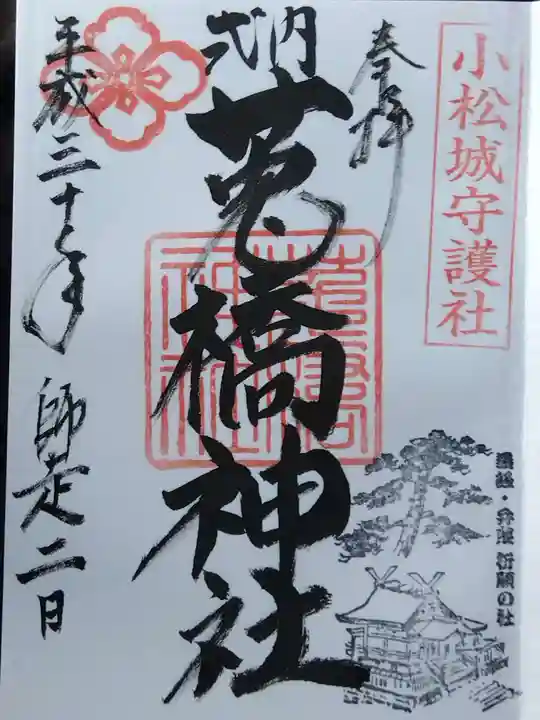 小松城守護社
奉拝
式内
莵橋神社
莵橋神社
平成三十年 師走二日
祈願の社